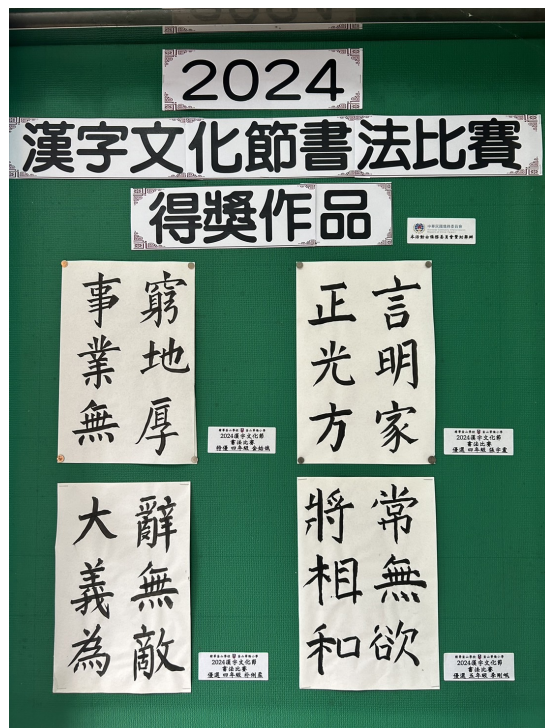 2024
漢字文化節書法比賽
得獎作品
中華民國僑務委員會
本活動由僑務委員會贊助舉辦
窮地厚
事業無
2024漢字文化節
書法比賽
特優 四年級
言明家
正光方
2024漢字文化節
書法比賽
優選 四年級
辭無敵
大義為
2024漢字文化節
書法比賽
優選 四年級
常無欲
將相和
2024漢字文化節
書法比賽
優選 五年級